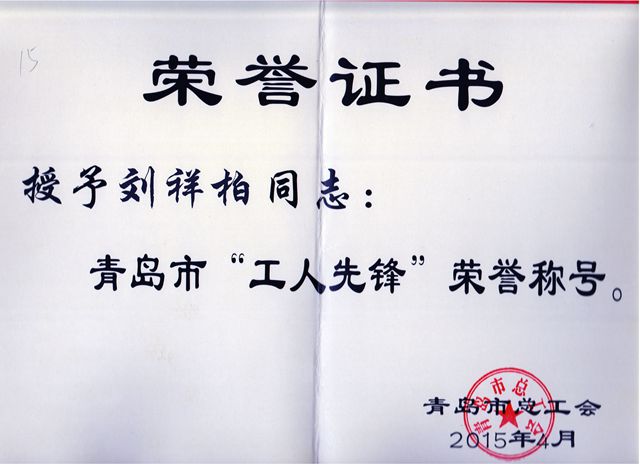 15
荣誉证书
授予刘祥柏同志：
青岛市“工人先锋”荣誉称号。
青岛市总工会
2015年4月
青岛市总工会